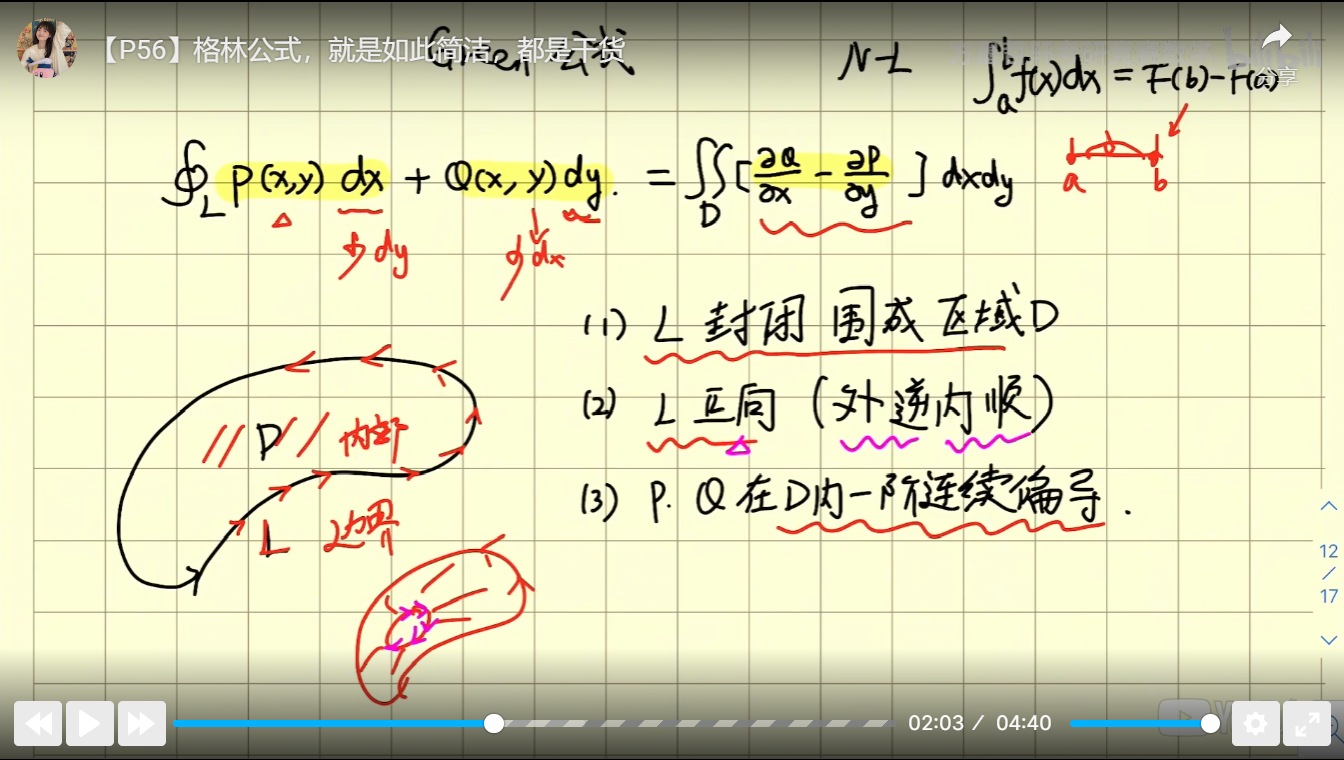 【P56】格林公式，就是如此简洁，都是干货
Green 公式
N-L ∫_a^b f(x)dx = F(b)-F(a)
分享
a b
∮_L P(x,y) dx + Q(x,y) dy. = ∬_D [∂Q/∂x - ∂P/∂y] dxdy
dy dx
(1) L 封闭 围成 区域D
(2) L 正向 (外逆内顺)
(3) P. Q 在D内一阶连续偏导.
D 内部
L 边界
12
/
17
02:03 / 04:40